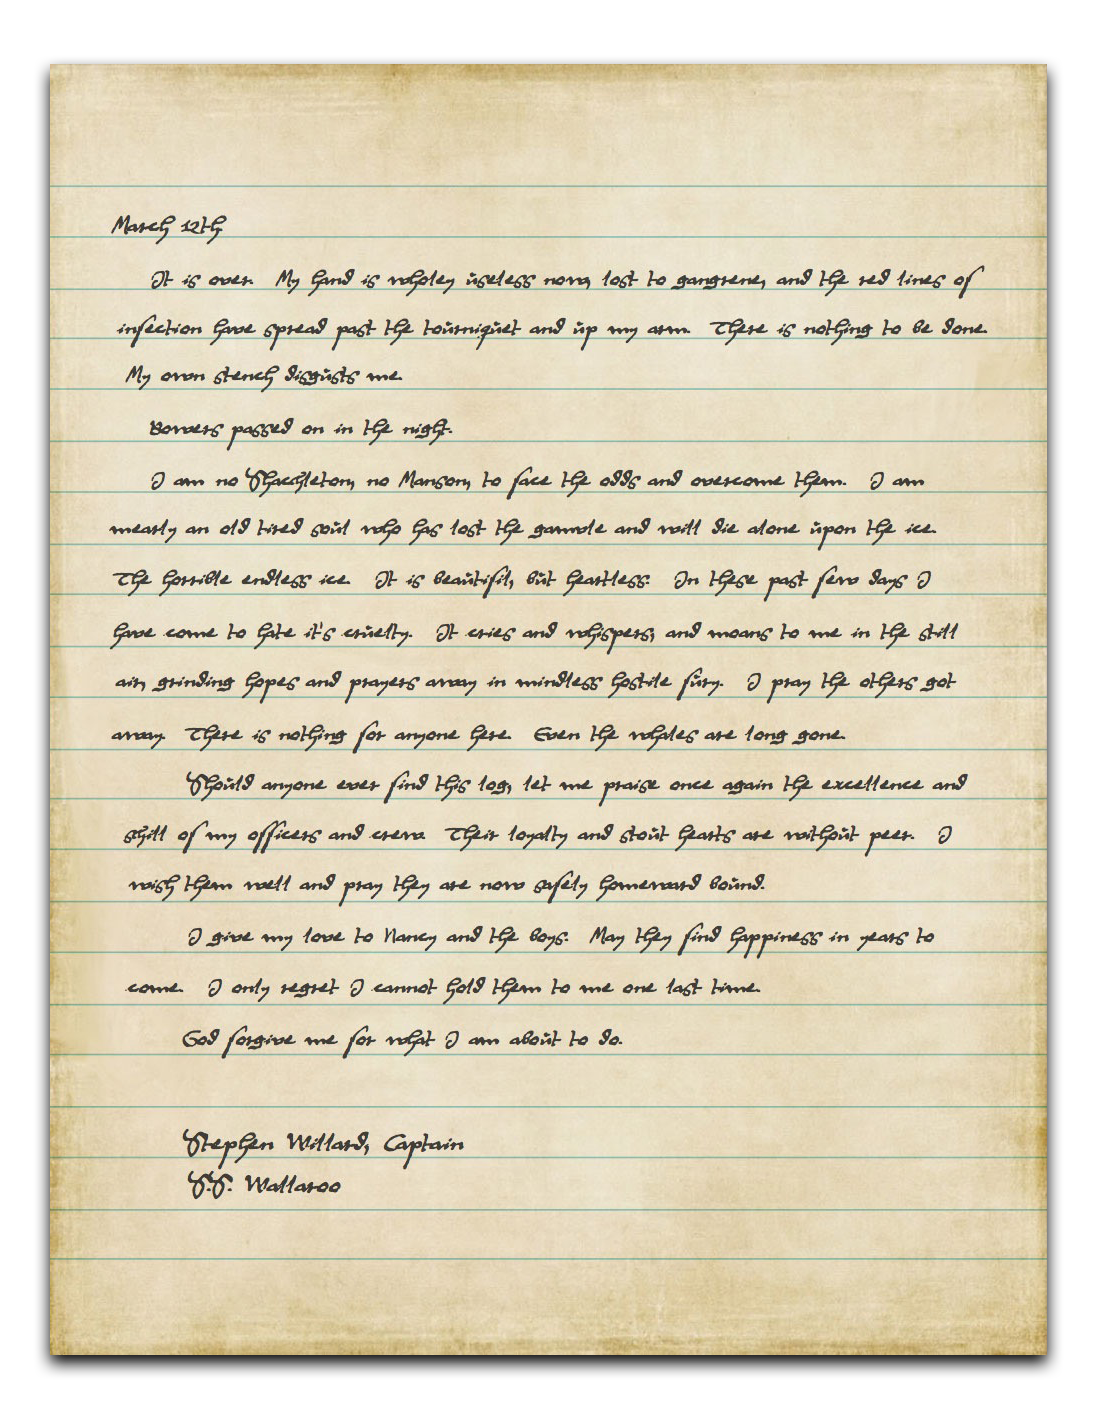 March 12th
It is over. My hand is wholey useless now, lost to gangrene, and the red lines of
infection have spread past the tourniquet and up my arm. There is nothing to be done.
My own stench disgusts me.
Bowers passed on in the night.
I am no Shackleton, no Manson, to face the odds and overcome them. I am
mearly an old tired soul who has lost the gamvle and will die alone upon the ice.
The horrible endless ice. It is beautiful, but heartless. In these past few days I
have come to hate it's cruelty. It cries and whispers, and moans to me in the still
air, grinding hopes and prayers away in mindless hostile fury. I pray the others got
away. There is nothing for anyone here. Even the whales are long gone.
Should anyone ever find this log, let me praise once again the excellence and
skill of my officers and crew. Their loyalty and stout hearts are without peer. I
wish them well and pray they are now safely homeward bound.
I give my love to Nancy and the boys. May they find happiness in years to
come. I only regret I cannot hold them to me one last time.
God forgive me for what I am about to do.
Stephen Willard, Captain
S.S. Wallaroo